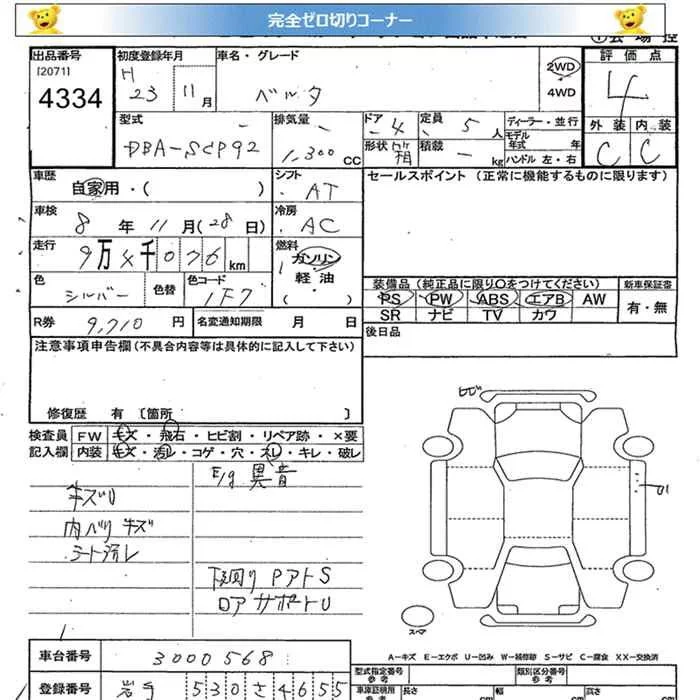 完全ゼロ切りコーナー
出品番号
[2071]
4334
初度登録年月
H
23 11月
車名・グレード
ベルタ
2WD
4WD
評価点
4
外装 内装
C C
型式
DBA-SCP92
排気量
1,300 CC
ドア 4
定員 5 人
形状 箱
積載 － kg
ディーラー・並行
モデル年式 年
ハンドル 左・右
車歴
自家用・( )
シフト
AT
セールスポイント (正常に機能するものに限ります)
車検
8 年 11 月(28 日)
冷房
AC
走行
9万4千076 km
燃料
ガソリン
軽・油
・( )
色
シルバー
色替
色コード
1F7
装備品 (純正品に限り○をつけてください)
新車保証書
PS PW ABS エアB AW
有・無
SR ナビ TV カワ
R券 9,710 円
名変通知期限 月 日
後日品
注意事項申告欄 (不具合内容等は具体的に記入して下さい)
修復歴 有 [箇所 ]
検査員
記入欄
FW キズ・飛石・ヒビ割・リペア跡・×要
内装 キズ・汚レ・コゲ・穴・スレ・キレ・破レ
E/g 異音
キズU
内バリキズ
シート汚レ
下廻り PアトS
ロアサポートU
ヒビ
U1
スペア
A=キズ E=エクボ U=凹み W=補修跡 S=サビ C=腐食 XX=交換済
車台番号
3000568
登録番号
岩手 530さ4655
型式指定番号
参考
類別区分番号
参考
車庫証明用
参考
長さ cm
幅 cm
高さ cm